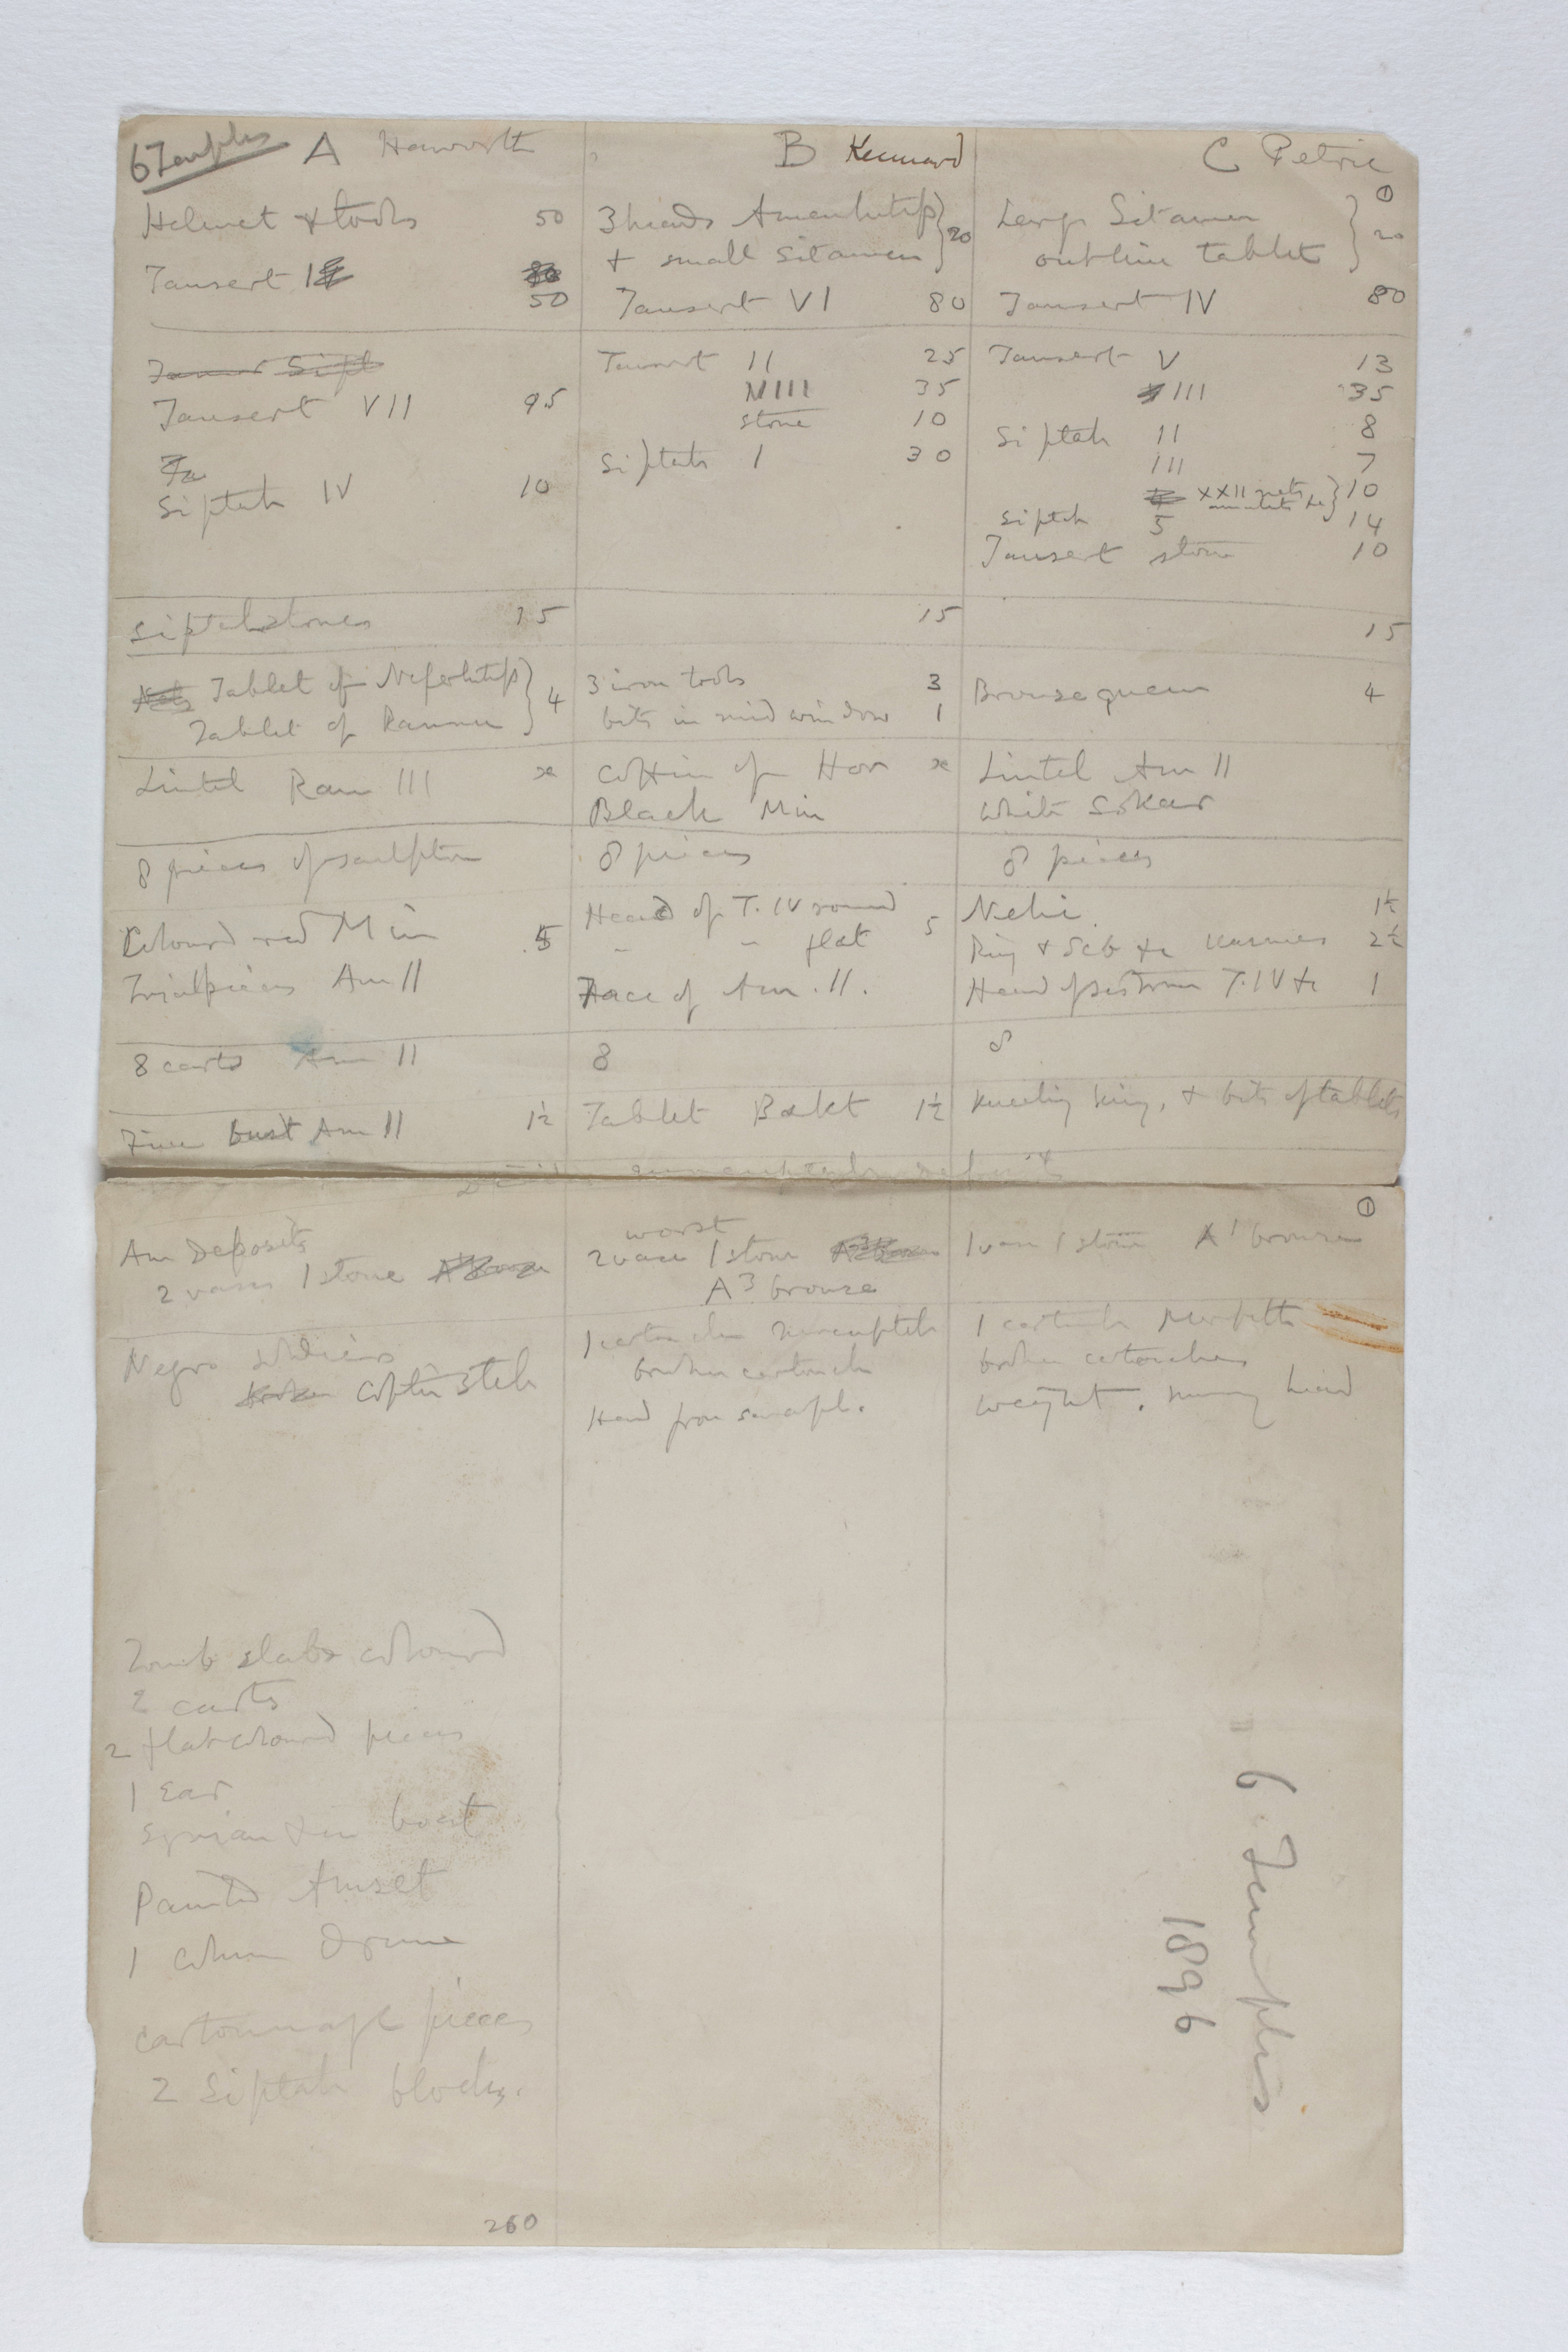 6 Temples
A Haworth
Helmet & tools 50
Tausert 1
80
50
Tausert VII 95
Ta
Siptah IV 10
Siptah stones 15
Tablet of Neferhotep } 4
Tablet of Rannu
Lintel Ram III x
8 pieces of sculpture
Coloured red Min 5
Trial pieces Am II
8 carts Am II
Fine bust Am II 1½
Am Deposits
2 vases 1 stone
Negro soldiers
broken Coptic stele
Tomb slabs coloured
2 carts
2 flat coloured pieces
1 Ear
Syrian & in boat
Painted Amset
1 column Drum
Cartonnage pieces
2 Siptah blocks.
260
B Kennard
3 heads Amenhetep } 20
+ small Sitamen
Tausert VI 80
Tausert II 25
VIII 35
stone 10
Siptah I 30
15
3 iron tools 3
bits in mid window 1
Coffin of Hor x
Black Min
8 pieces
Head of T. IV round 5
" " flat
Face of Am. II.
8
Tablet Bakt 1½
worst
2 vases 1 stone
A3 bronze
1 cartouche Merenptah
broken cartouche
Head from
C Petrie
1
Large Sitamen } 20
outline tablet
Tausert IV 80
Tausert V 13
III 35
Siptah II 8
III 7
XXII nets } 10
amulets &c
Siptah 5 14
Tausert stone 10
15
Bronze queen 4
Lintel Am II
White Sokar
8 pieces
Nehi 1½
Ring & Seb &c Karnes 2½
Head of sistrum T. IV &c 1
8
Kneeling king, & bits of tablets
1
1 vase 1 stone A1 bronze
1 cartouche perfect
broken cartouches
weight. mummy head
6 Temples
1896